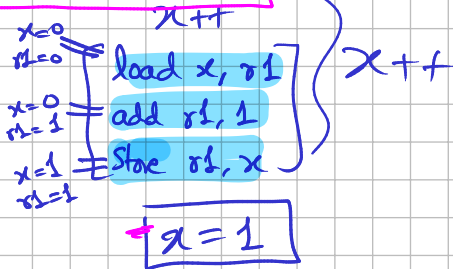 x++
x=0
r1=0
load x, r1
x++
x=0
r1=1
add r1, 1
x=1
r1=1
Store r1, x
x = 1